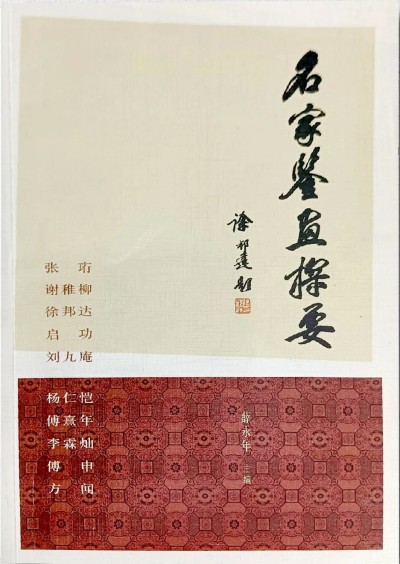 名家鑒画探要
徐邦達題
张珩
谢稚柳
徐邦达
启功
刘九庵
杨仁恺
傅熹年
李霖灿
傅申
方闻
薛永年 主编